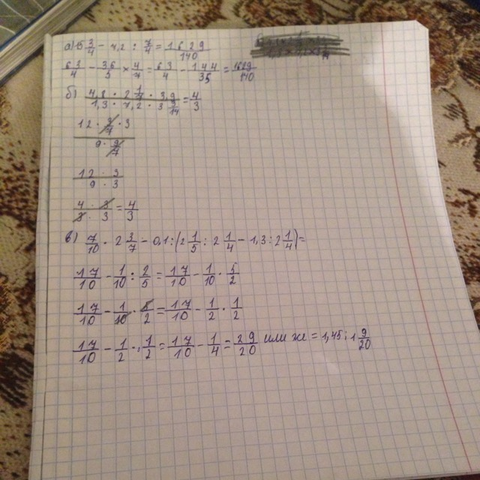 а) 15 3/4 − 7,2 : 7/4 = 1629/140
63/4 − 36/5 × 4/7 = 63/4 − 144/35 = 1629/140
б) 4,8 · 2 1/7 · 3,9 / 1,3 · 7,2 · 3 3/14 = 4/3
12 · 3/7 · 3 / 9 · 9/7
12 · 3 / 9 · 3
4 · 3 / 3 · 3 = 4/3
в) 7/10 · 2 3/7 − 0,1 : (2 1/5 : 2 1/4 − 1,3 : 2 1/4) =
17/10 − 1/10 : 2/5 = 17/10 − 1/10 · 5/2
17/10 − 1/10 · 5/2 = 17/10 − 1/2 · 1/2
17/10 − 1/2 · 1/2 = 17/10 − 1/4 = 29/20 или же = 1,45; 1 9/20